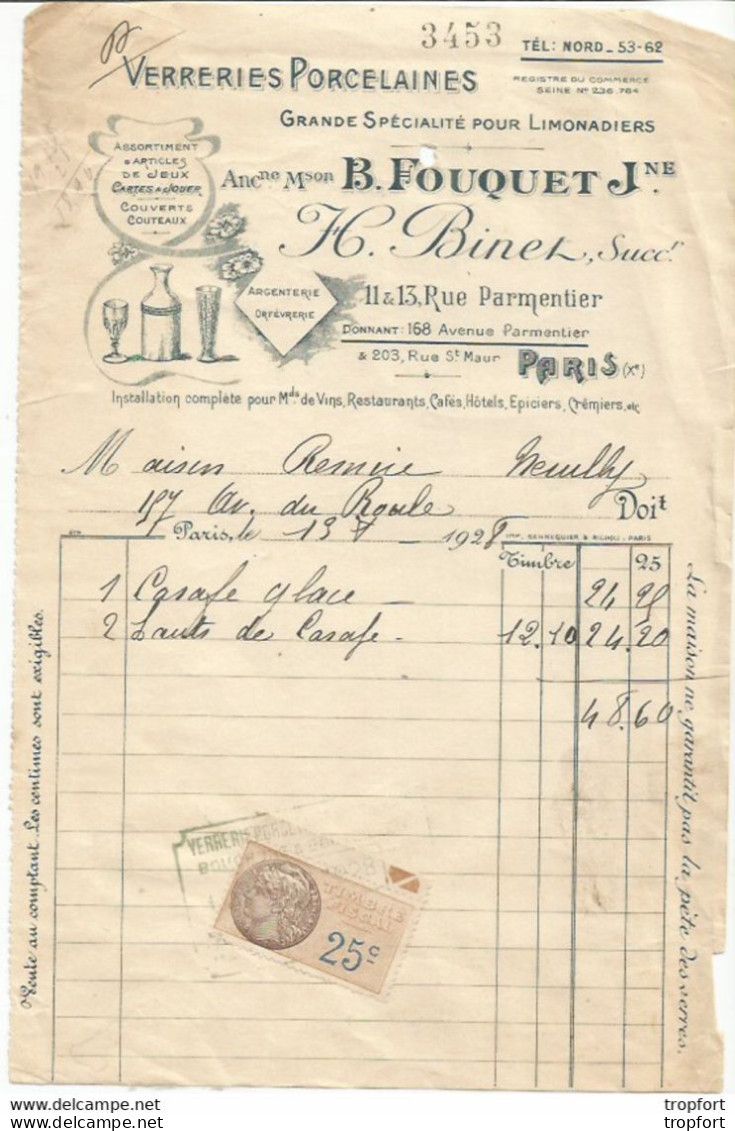 3453
TÉL: NORD_53-62
VERRERIES PORCELAINES
REGISTRE DU COMMERCE
SEINE Nº 236.764
GRANDE SPÉCIALITÉ POUR LIMONADIERS
ASSORTIMENT
D'ARTICLES
DE JEUX
CARTES À JOUER
COUVERTS
COUTEAUX
Ancne Mson B. FOUQUET JNE
H. Binet, Succr
ARGENTERIE
ORFÈVRERIE
11 & 13, Rue Parmentier
DONNANT: 168 Avenue Parmentier
& 203, Rue St Maur PARIS (Xe)
Installation complète pour Mds de Vins, Restaurants, Cafés, Hôtels, Epiciers, Crémiers, etc
Maison Neuilly
157 Av. du Roule Doit
Paris, le 13 1928
Timbre 25
1 Carafe glace 24
2 de Carafe 12.10 24.20
48.60
Vente au comptant. Les centimes sont exigibles.
La maison ne garantit pas la pète des verres.
VERRERIE PORCEL
TIMBRE
FISCAL
25c
tropfort
tropfort
tropfort
tropfort